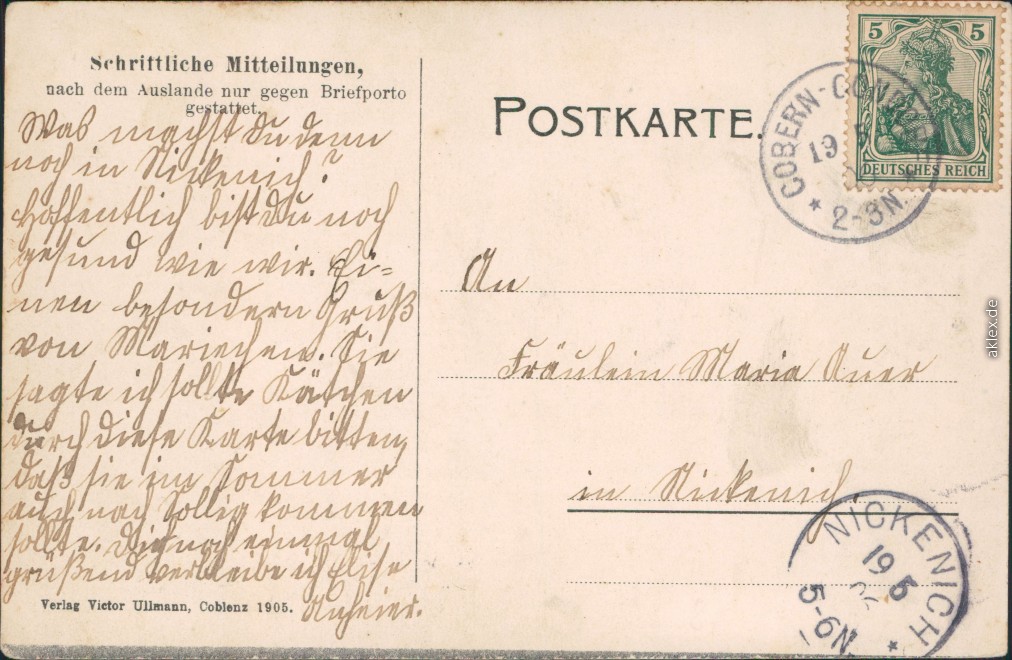 Schriftliche Mitteilungen,
nach dem Auslande nur gegen Briefporto
gestattet.
Was machst Du denn
noch in Nickenich?
Hoffentlich bist Du noch
gesund wie wir. Ei-
nen besondern Gruß
von Mariechen. Sie
sagte ich sollte Kätchen
durch diese Karte bitten,
daß sie im Sommer
auch nach Sollig kommen
sollte. Dich noch einmal
grüßend verbleibe ich Elise
Anheier.
Verlag Victor Ullmann, Coblenz 1905.
POSTKARTE.
5 5
DEUTSCHES REICH
COBERN-GONDORF
19 5
2-3N
An
Fräulein Maria Auer
in Nickenich.
NICKENICH
19 5
5-6N
aklex.de